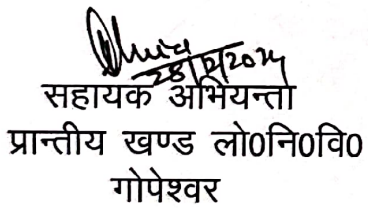 28/2/2024
सहायक अभियन्ता
प्रान्तीय खण्ड लो0नि0वि0
गोपेश्वर